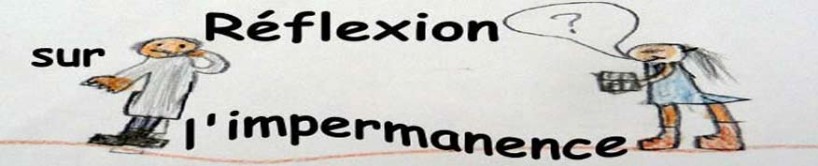 Réflexion
?
sur
l'impermanence